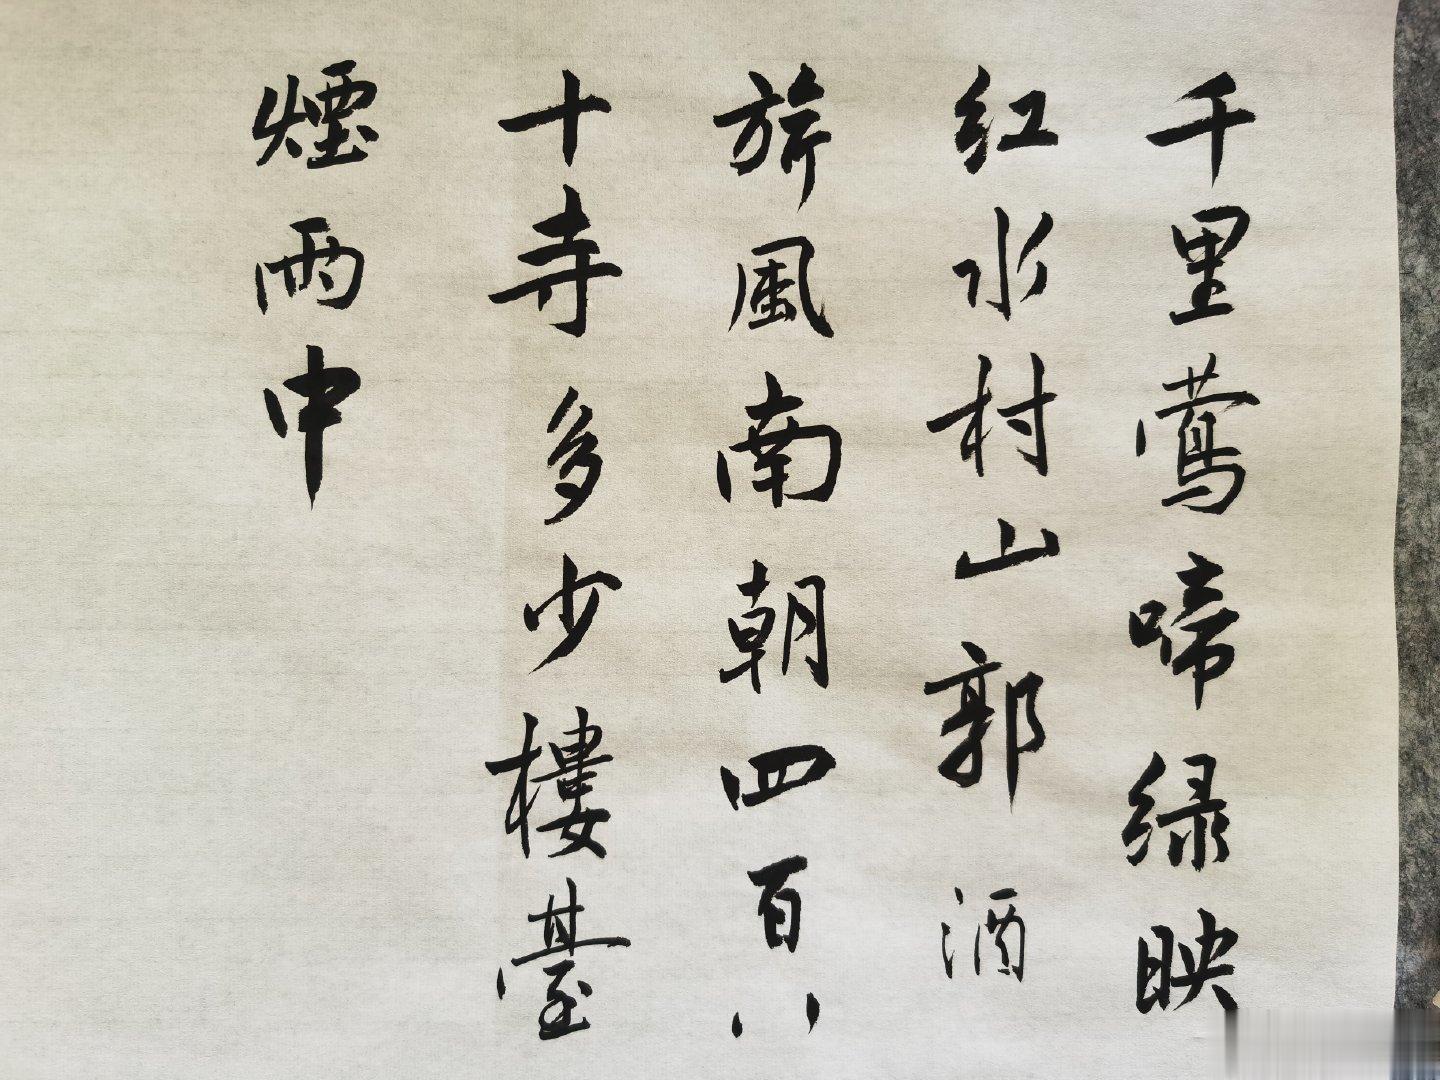 千里莺啼绿映
红水村山郭酒
旂風南朝四百八
十寺多少樓臺
煙雨中